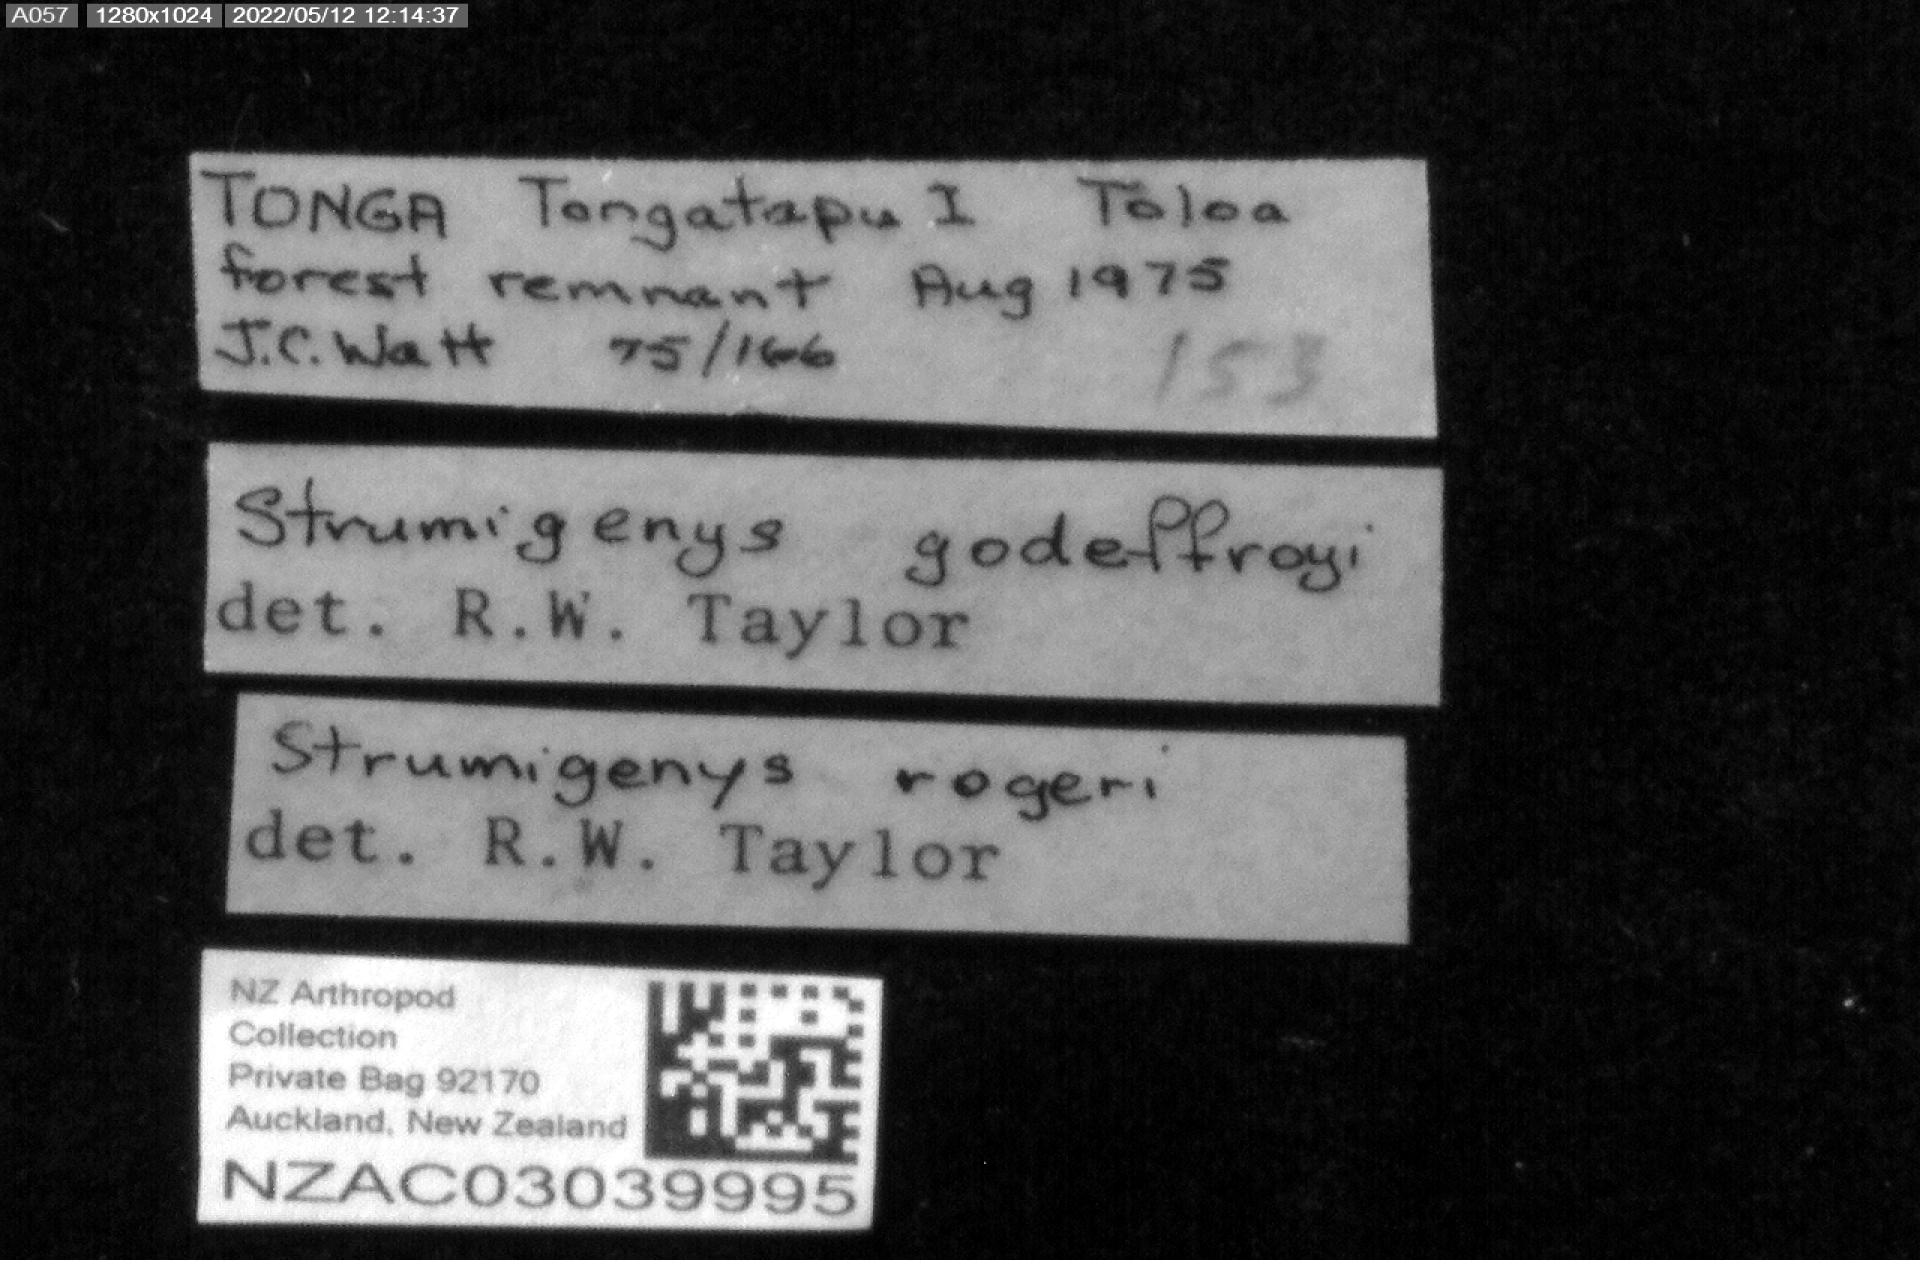 A057 1280x1024 2022/05/12 12:14:37
TONGA Tongatapu I Toloa
forest remnant Aug 1975
J.C. Watt 75/166 153
Strumigenys godeffroyi
det. R.W. Taylor
Strumigenys rogeri
det. R.W. Taylor
NZ Arthropod
Collection
Private Bag 92170
Auckland, New Zealand
NZAC03039995